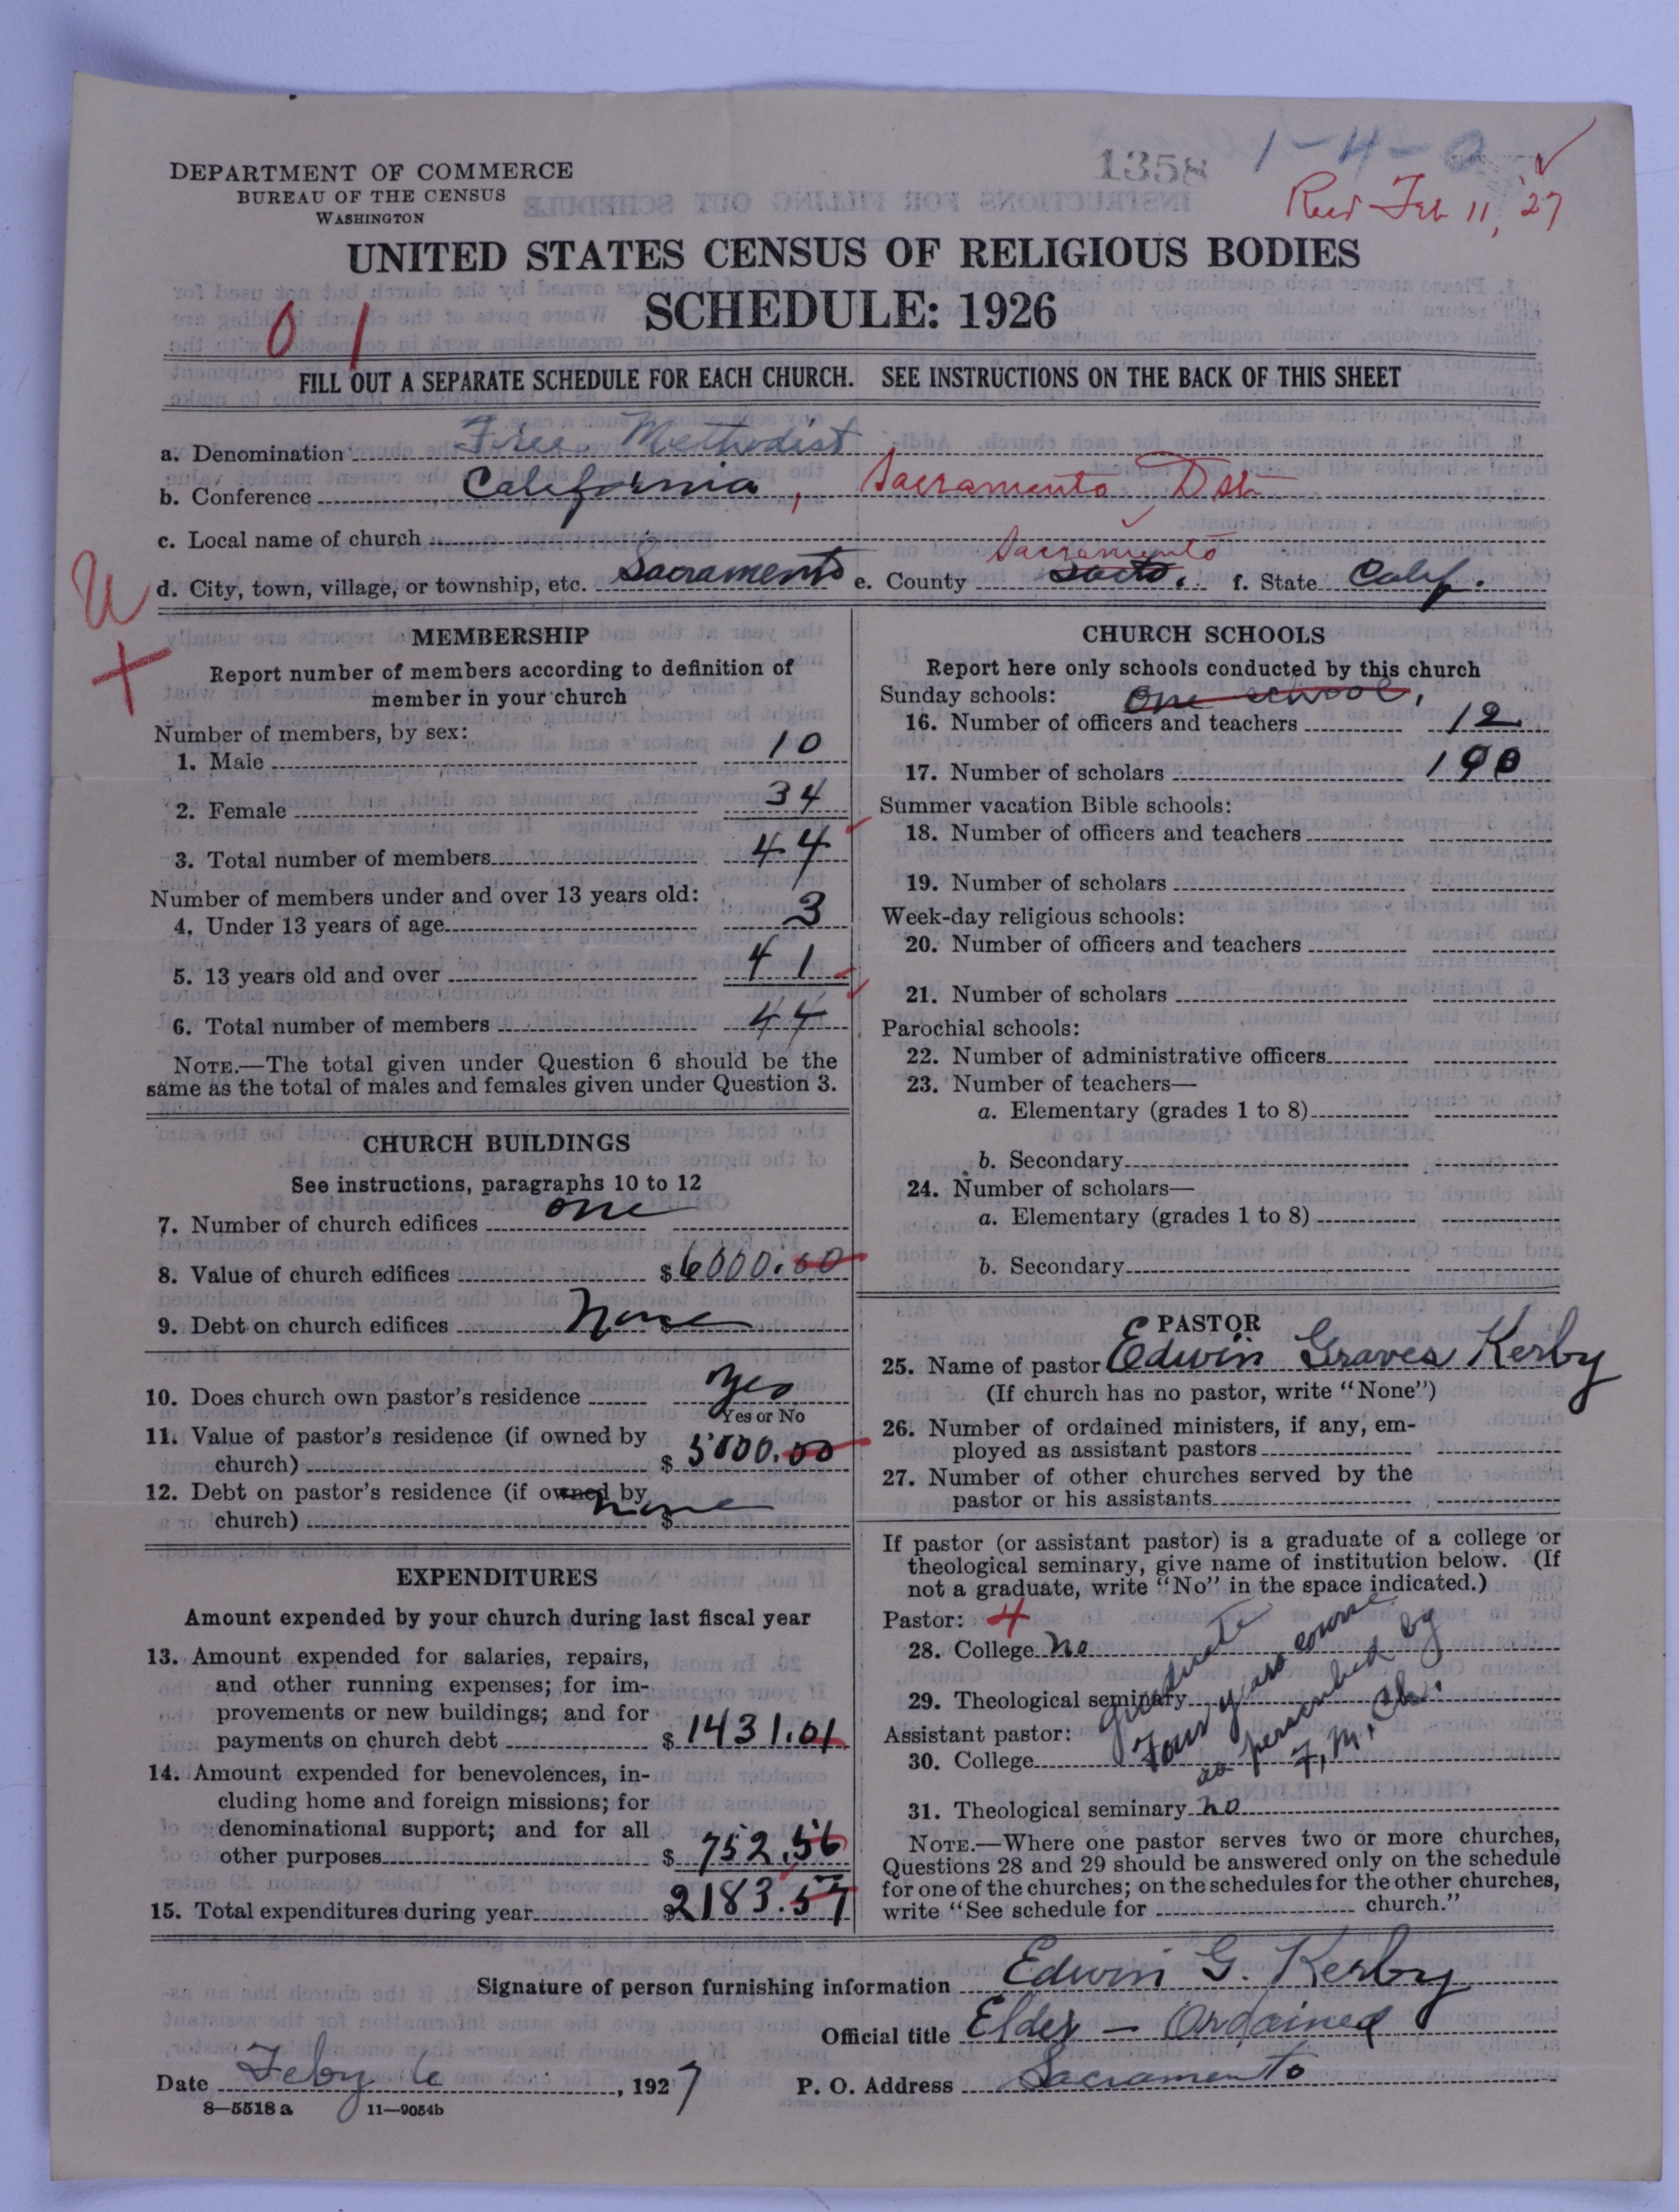 1358 1-4-0
DEPARTMENT OF COMMERCE
BUREAU OF THE CENSUS
WASHINGTON
Recd Feb 11, '27
UNITED STATES CENSUS OF RELIGIOUS BODIES
SCHEDULE: 1926
0 1
FILL OUT A SEPARATE SCHEDULE FOR EACH CHURCH. SEE INSTRUCTIONS ON THE BACK OF THIS SHEET
a. Denomination Free Methodist
b. Conference California, Sacramento Dst
c. Local name of church
Sacramento
d. City, town, village, or township, etc. Sacramento e. County Sacto. f. State Calif.
U
+
MEMBERSHIP
Report number of members according to definition of
member in your church
Number of members, by sex:
1. Male 10
2. Female 34
3. Total number of members 44
Number of members under and over 13 years old:
4. Under 13 years of age 3
5. 13 years old and over 41
6. Total number of members 44
NOTE.—The total given under Question 6 should be the
same as the total of males and females given under Question 3.
CHURCH BUILDINGS
See instructions, paragraphs 10 to 12
7. Number of church edifices one
8. Value of church edifices $6000.00
9. Debt on church edifices None $
10. Does church own pastor's residence Yes
Yes or No
11. Value of pastor's residence (if owned by
church) $ 5000.00
12. Debt on pastor's residence (if owned by
church) none $
EXPENDITURES
Amount expended by your church during last fiscal year
13. Amount expended for salaries, repairs,
and other running expenses; for im-
provements or new buildings; and for
payments on church debt $ 1431.01
14. Amount expended for benevolences, in-
cluding home and foreign missions; for
denominational support; and for all
other purposes $ 752.56
15. Total expenditures during year $2183.57
CHURCH SCHOOLS
Report here only schools conducted by this church
Sunday schools: One school,
16. Number of officers and teachers 12
17. Number of scholars 100
Summer vacation Bible schools:
18. Number of officers and teachers
19. Number of scholars
Week-day religious schools:
20. Number of officers and teachers
21. Number of scholars
Parochial schools:
22. Number of administrative officers
23. Number of teachers—
a. Elementary (grades 1 to 8)
b. Secondary
24. Number of scholars—
a. Elementary (grades 1 to 8)
b. Secondary
PASTOR
25. Name of pastor Edwin Graves Kerby
(If church has no pastor, write "None")
26. Number of ordained ministers, if any, em-
ployed as assistant pastors
27. Number of other churches served by the
pastor or his assistants
If pastor (or assistant pastor) is a graduate of a college or
theological seminary, give name of institution below. (If
not a graduate, write "No" in the space indicated.)
Pastor: 4
28. College no
29. Theological seminary
Graduate
Four years course
as perscribed by
F. M. Ch.
Assistant pastor:
30. College
31. Theological seminary no
NOTE.—Where one pastor serves two or more churches,
Questions 28 and 29 should be answered only on the schedule
for one of the churches; on the schedules for the other churches,
write "See schedule for church."
Signature of person furnishing information Edwin G. Kerby
Official title Elder – Ordained
Date Feby 6, 1927 P. O. Address Sacramento
8—5518a 11—9054b